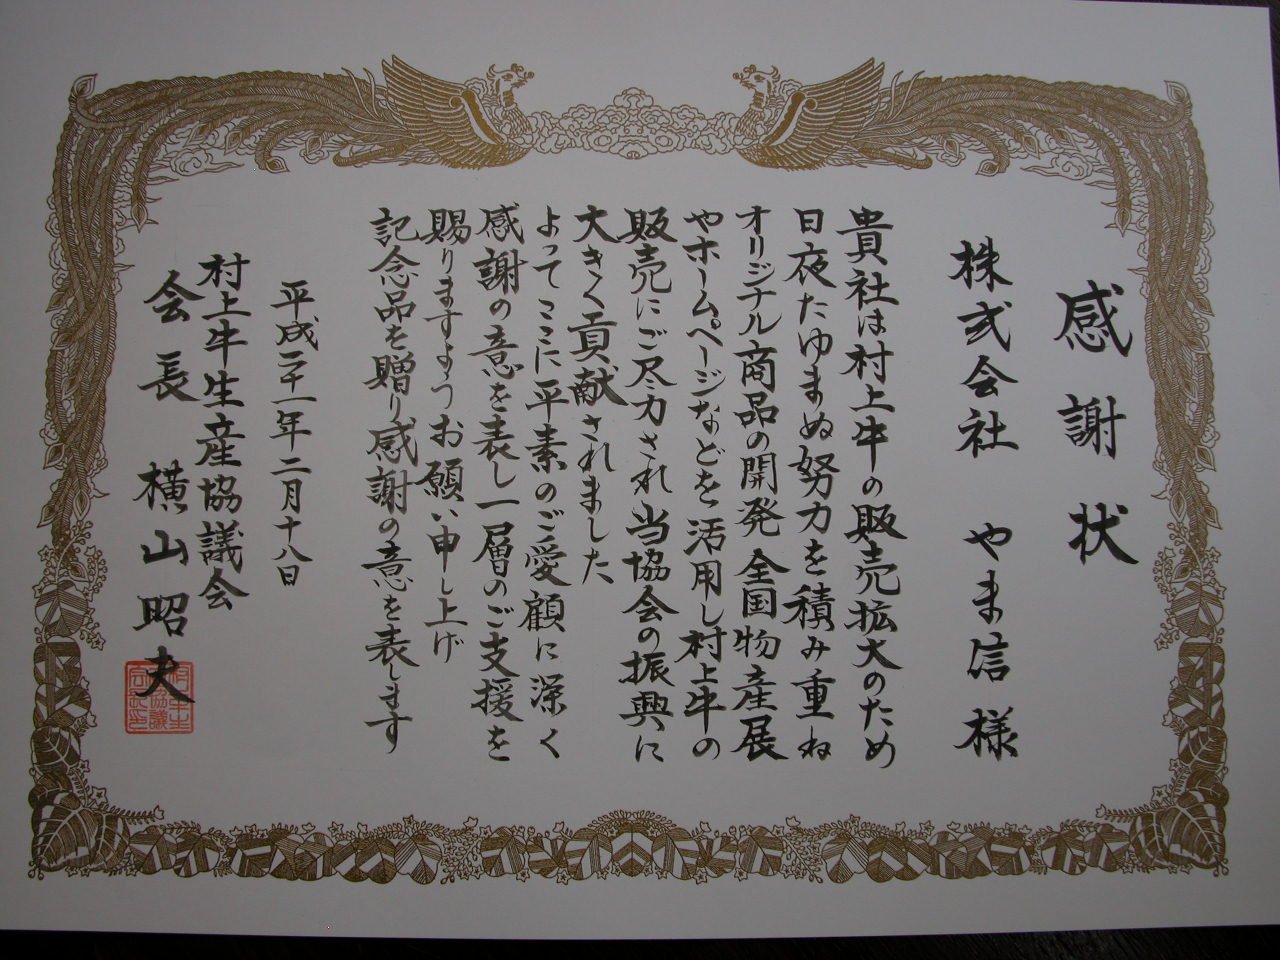 感謝状
株式会社 やま信 様
貴社は村上牛の販売拡大のため
日夜たゆまぬ努力を積み重ね
オリジナル商品の開発 全国物産展
やホームページなどを活用し村上牛の
販売にご尽力され当協会の振興に
大きく貢献されました
よってここに平素のご愛顧に深く
感謝の意を表し一層のご支援を
賜りますようお願い申し上げ
記念品を贈り感謝の意を表します
平成二十一年二月十八日
村上牛生産協議会
会長 横山昭夫